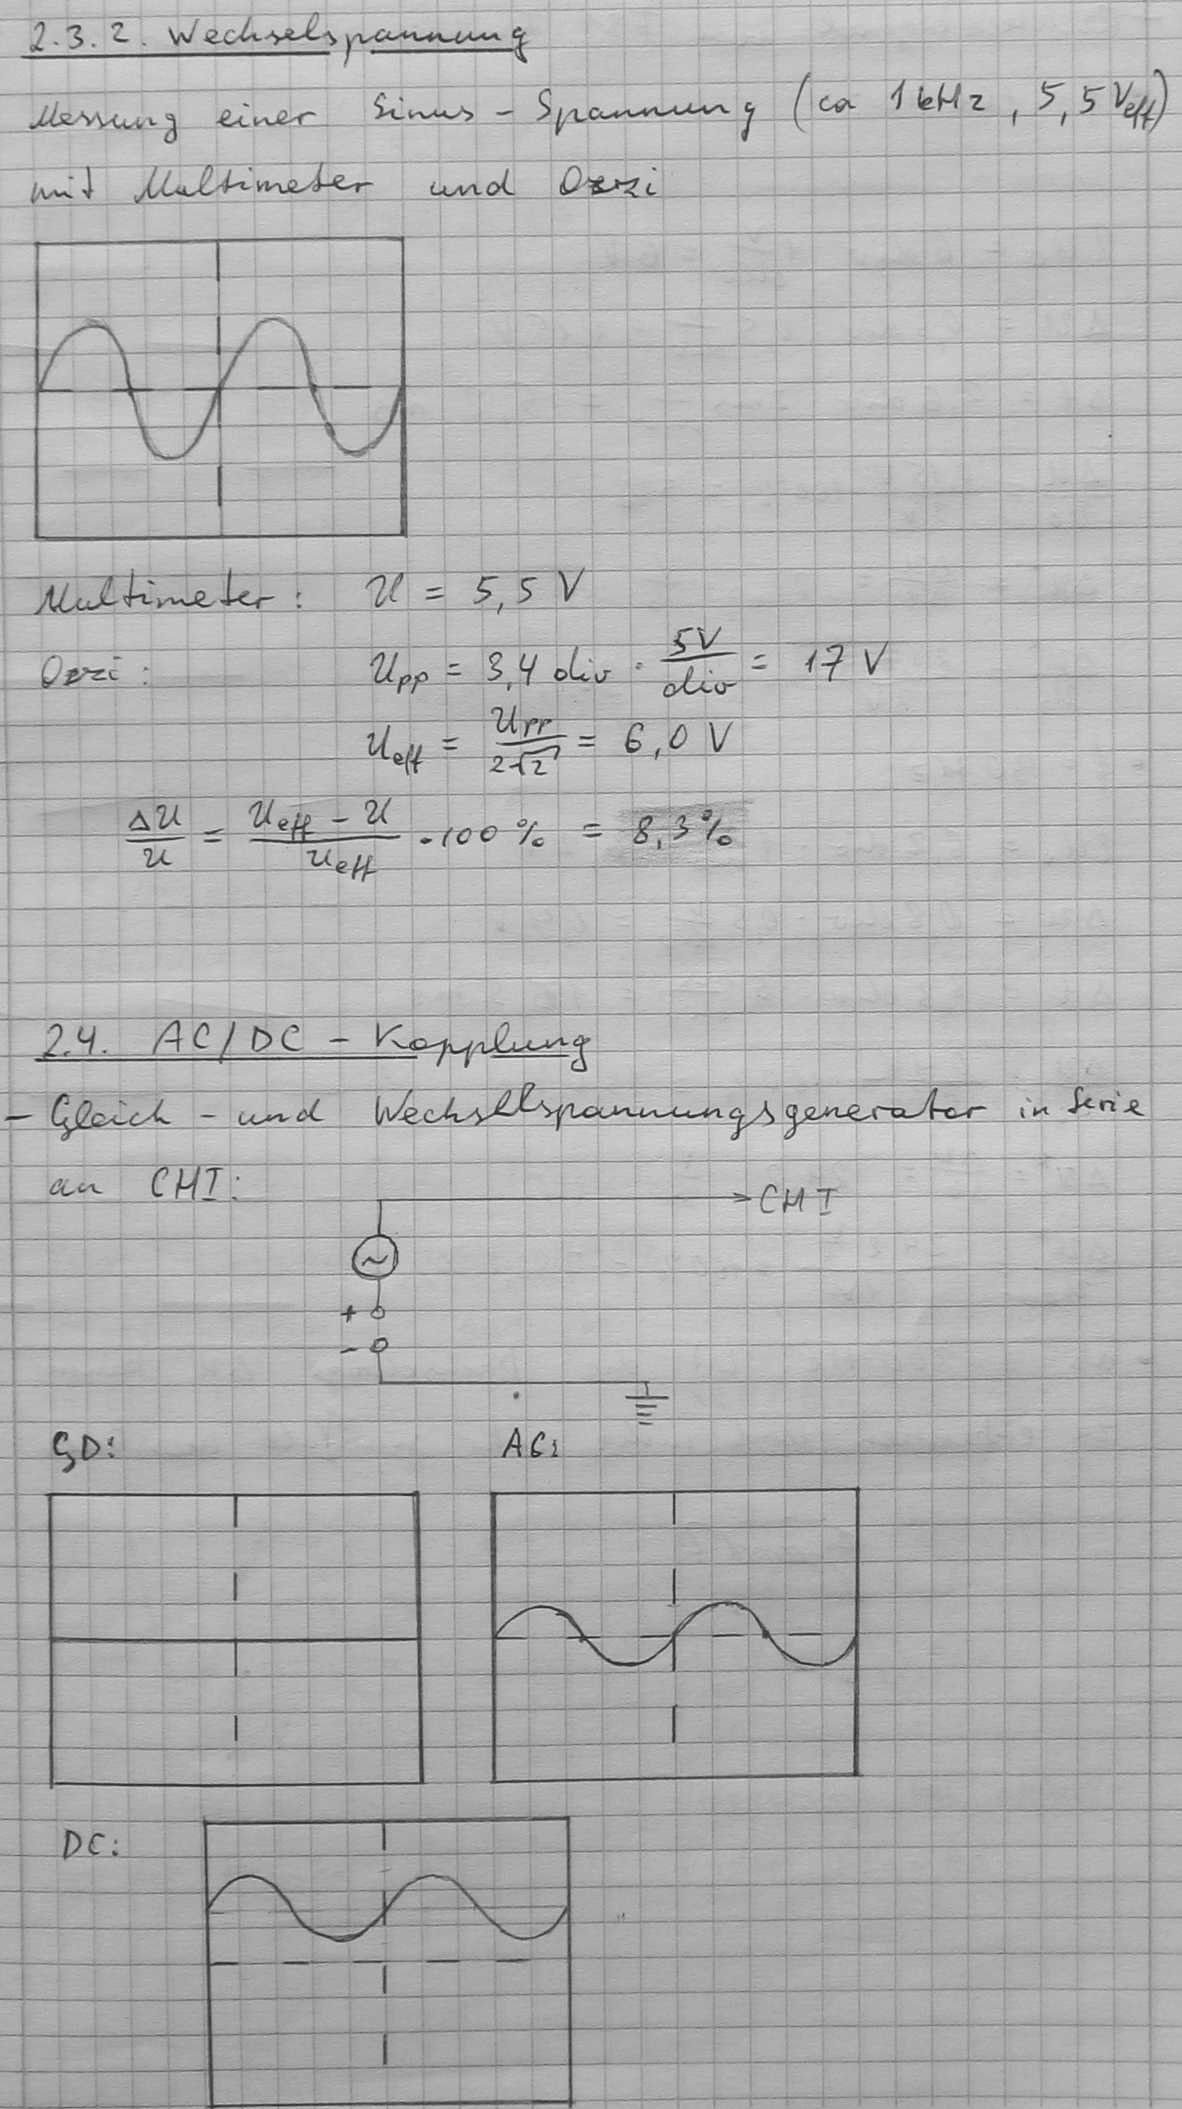 2.3.2. Wechselspannung
Messung einer Sinus-Spannung (ca 1 kHz, 5,5 Veff)
mit Multimeter und Ozzi
Multimeter: U = 5,5 V
Ozzi: Upp = 3,4 div · 5V/div = 17 V
Ueff = Upp/2√2 = 6,0 V
ΔU/U = (Ueff - U)/Ueff · 100 % = 8,3 %
2.4. AC/DC - Kopplung
- Gleich- und Wechselspannungsgenerator in Serie
an CHI:
CHI
~
+
-
GD: AC:
DC: